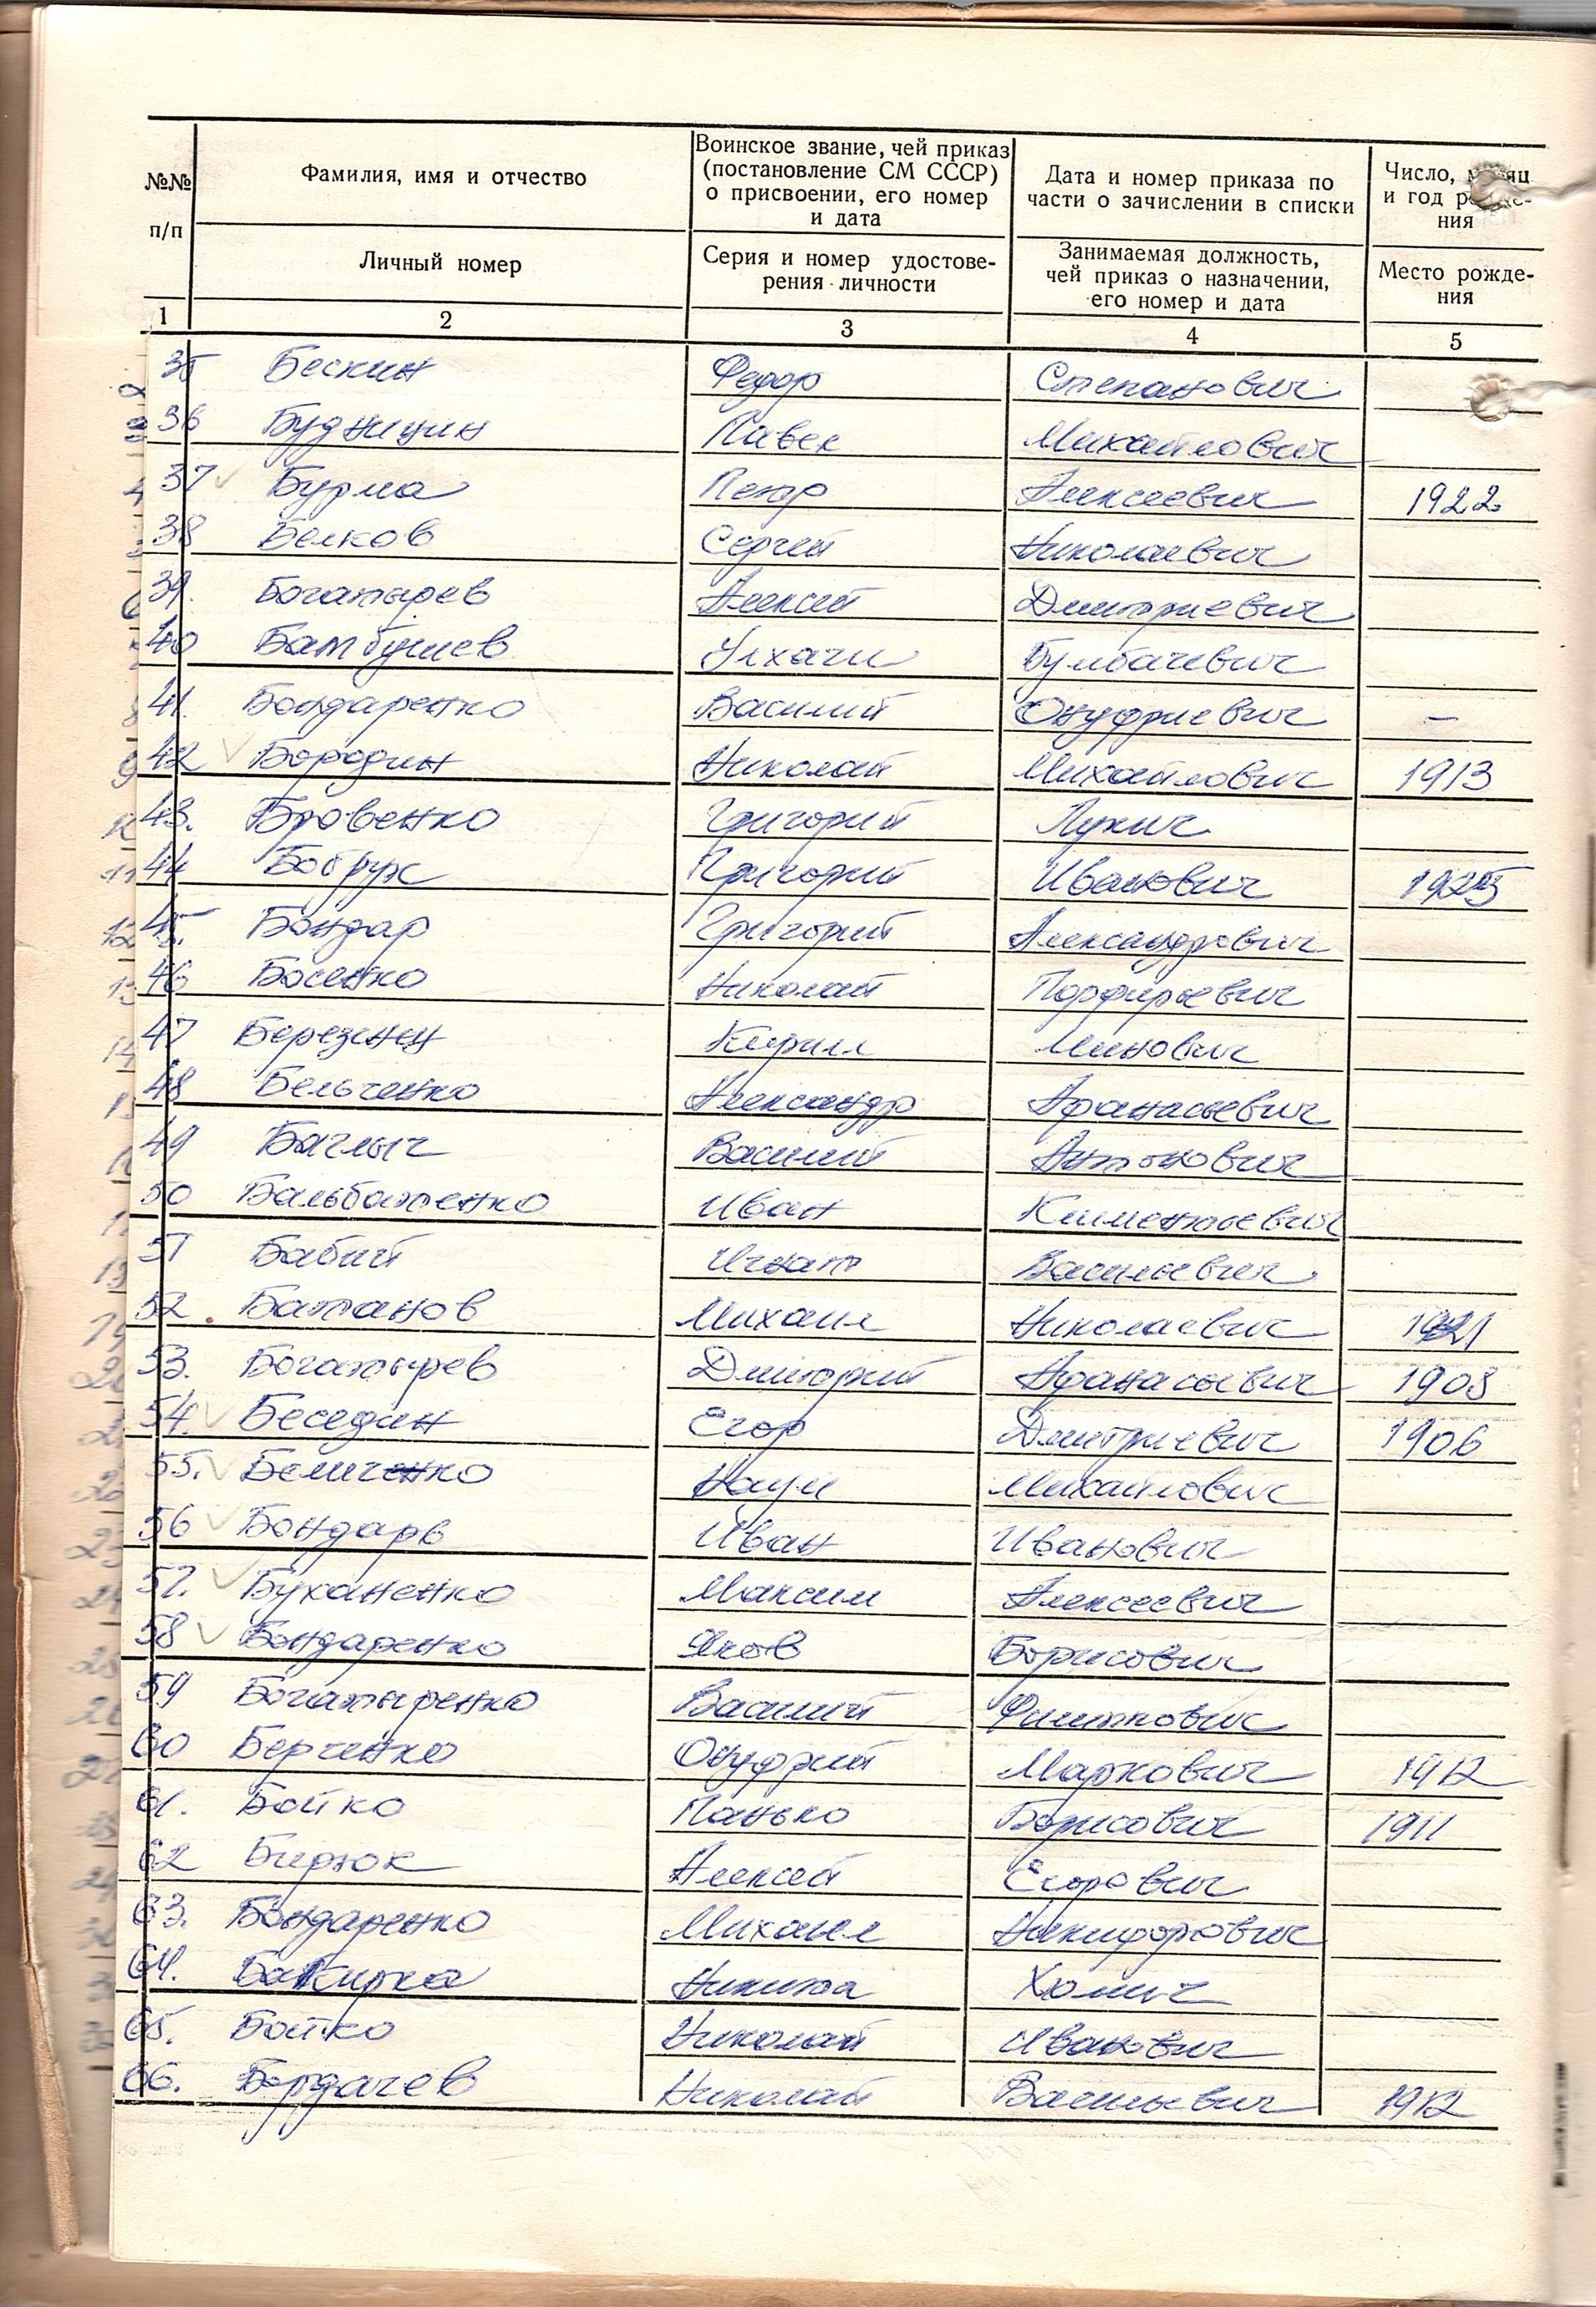 №№ п/п
Фамилия, имя и отчество
Личный номер
Воинское звание, чей приказ
(постановление СМ СССР)
о присвоении, его номер
и дата
Серия и номер удостове-
рения личности
Дата и номер приказа по
части о зачислении в списки
Занимаемая должность,
чей приказ о назначении,
его номер и дата
Число, месяц
и год рожде-
ния
Место рожде-
ния
1 2 3 4 5
35 Бескин Федор Степанович
36 Будницин Павел Михайлович
37 Бурма Петр Алексеевич 1922
38 Белков Сергей Николаевич
39. Богатырев Алексей Дмитриевич
40 Бамбушев Улхачи Булбачевич
41. Бондаренко Василий Онуфриевич –
42 Бородин Николай Михайлович 1913
43. Бровенко Григорий Лукич
44 Бобрук Григорий Иванович 1925
45. Бондар Григорий Александрович
46 Босенко Николай Порфирьевич
47 Березнец Кирилл Минович
48 Бельченко Александр Афанасьевич
49 Баглыч Василий Антонович
50 Бальбатенко Иван Климентьевич
51 Бабий Игнат Васильевич
52. Батанов Михаил Николаевич 1921
53. Богатырев Дмитрий Афанасьевич 1908
54. Беседин Егор Дмитриевич 1906
55. Беличенко Наум Михайлович
56 Бондарь Иван Иванович
57. Буханенко Максим Алексеевич
58 Бондаренко Яков Борисович
59 Богатыренко Василий Филиппович
60 Берченко Онуфрий Маркович 1912
61. Бойко Панько Борисович 1911
62 Бирюк Алексей Егорович
63. Бондаренко Михаил Никифорович
64. Бакирка Никита Хомич
65. Бойко Николай Иванович
66. Бордачев Николай Васильевич 1912